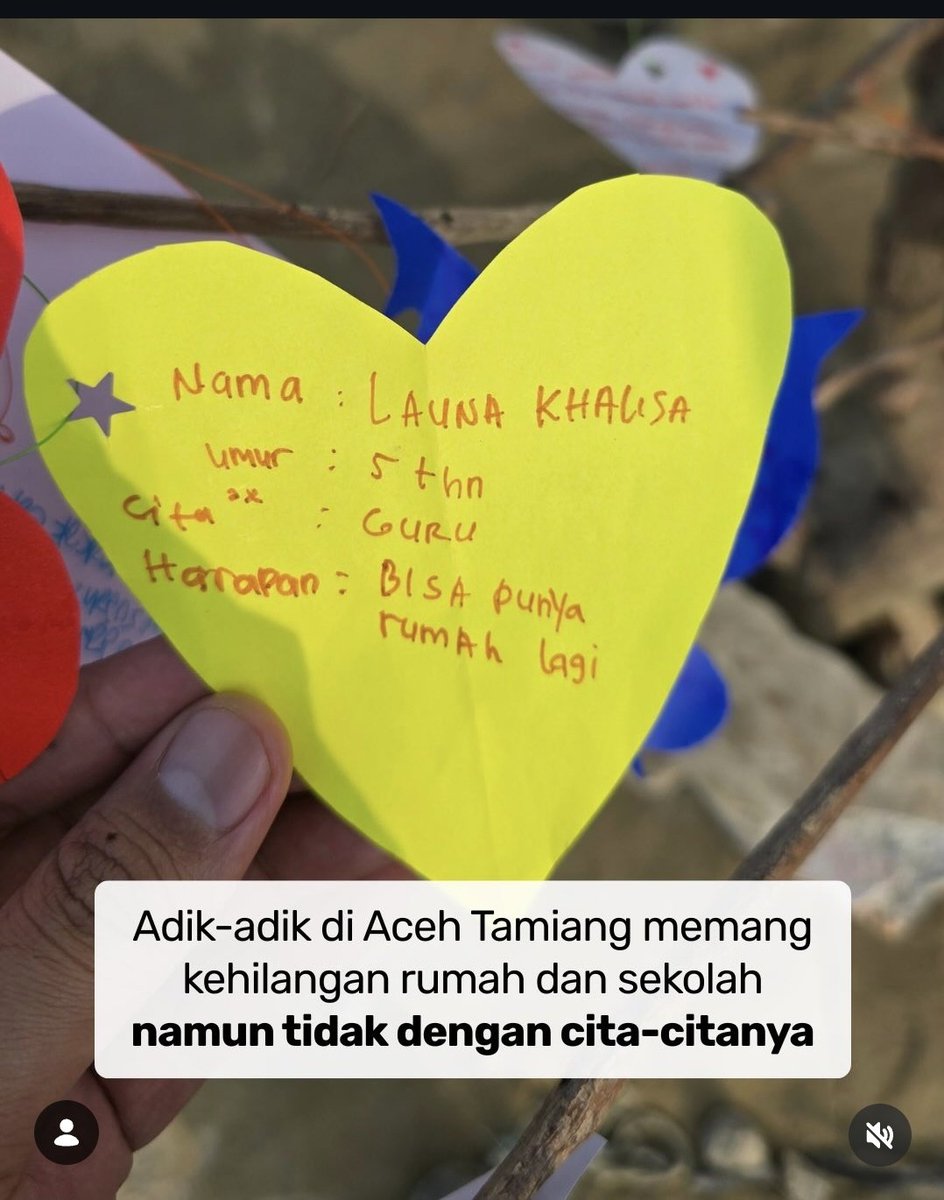 Nama : LAUNA KHALISA
umur : 5 thn
Cita 2x : GURU
Harapan : BISA punya
rumAh lagi
Adik-adik di Aceh Tamiang memang
kehilangan rumah dan sekolah
namun tidak dengan cita-citanya